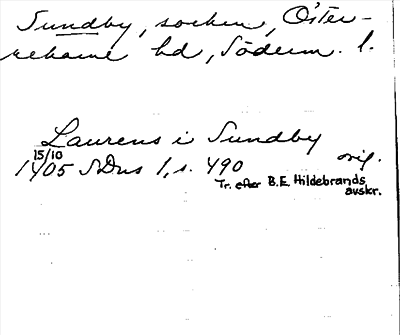 Sundby, socken, Öster-
rekarne hd, Söderm. l.
Laurens i Sundby
15/10 orig.
1405 SDns 1, s. 490
Tr. efter B.E. Hildebrands
avskr.